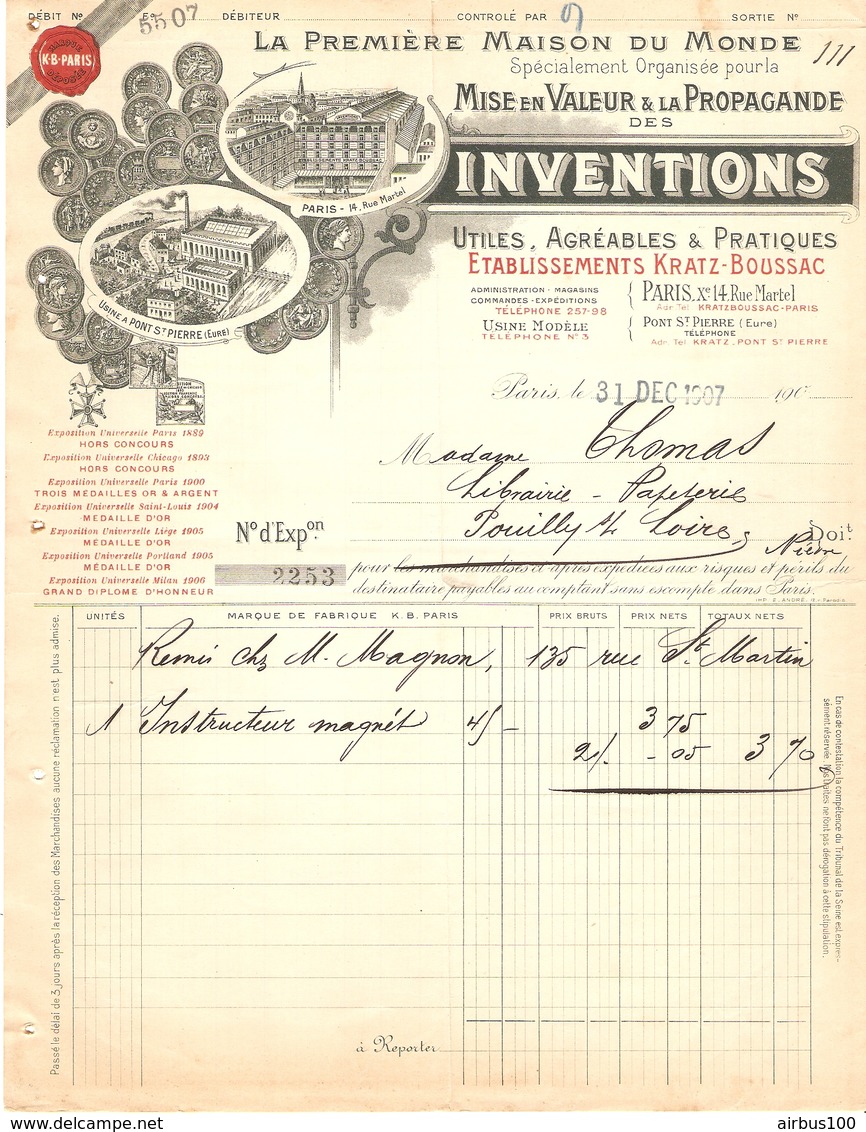 DÉBIT Nº
5507
DÉBITEUR
CONTROLÉ PAR
SORTIE Nº
MARQUE
K·B·PARIS
DÉPOSÉE
LA PREMIÈRE MAISON DU MONDE
111
Spécialement Organisée pour la
MISE EN VALEUR & LA PROPAGANDE
DES
INVENTIONS
PARIS - 14, Rue Martel
UTILES, AGRÉABLES & PRATIQUES
ETABLISSEMENTS KRATZ-BOUSSAC
ADMINISTRATION · MAGASINS
COMMANDES - EXPÉDITIONS
TÉLÉPHONE 257-98
PARIS, Xe 14, Rue Martel
Adr Tel KRATZBOUSSAC-PARIS
USINE MODÈLE
TÉLÉPHONE Nº 3
PONT ST PIERRE (Eure)
TÉLÉPHONE
Adr. Tel KRATZ_PONT ST PIERRE
USINE A PONT ST PIERRE (EURE)
Paris, le 31 DEC 1907 190
Exposition Universelle Paris 1889
HORS CONCOURS
Exposition Universelle Chicago 1893
HORS CONCOURS
Exposition Universelle Paris 1900
TROIS MÉDAILLES OR & ARGENT
Exposition Universelle Saint-Louis 1904
MÉDAILLE D'OR
Exposition Universelle Liège 1905
MÉDAILLE D'OR
Exposition Universelle Portland 1905
MÉDAILLE D'OR
Exposition Universelle Milan 1906
GRAND DIPLOME D'HONNEUR
Madame Thomas
Librairie - Papeterie
Pouilly s/ Loire
Nièvre
Doit
Nº d'Expon
2253
pour les marchandises ci après expédiées aux risques et périls du
destinataire payables au comptant sans escompte dans Paris.
UNITÉS
MARQUE DE FABRIQUE K. B. PARIS
PRIX BRUTS
PRIX NETS
TOTAUX NETS
Remis chz M. Magnon, 135 rue St Martin
1 Instructeur magnét 4f - 3 75
2% - 05 3 70
Passé le délai de 3 jours après la réception des Marchandises aucune réclamation n'est plus admise.
En cas de contestation la compétence du Tribunal de la Seine est expres-
sément réservée. Nos traites ne font pas dérogation à cette stipulation.
à Reporter
www.delcampe.net
airbus100